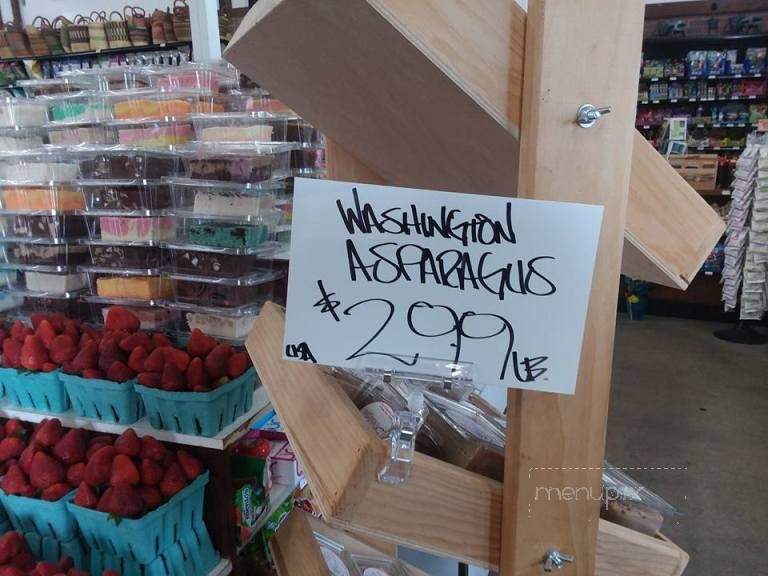 WASHINGTON
ASPARAGUS
$2.99
USA
LB.
menupix